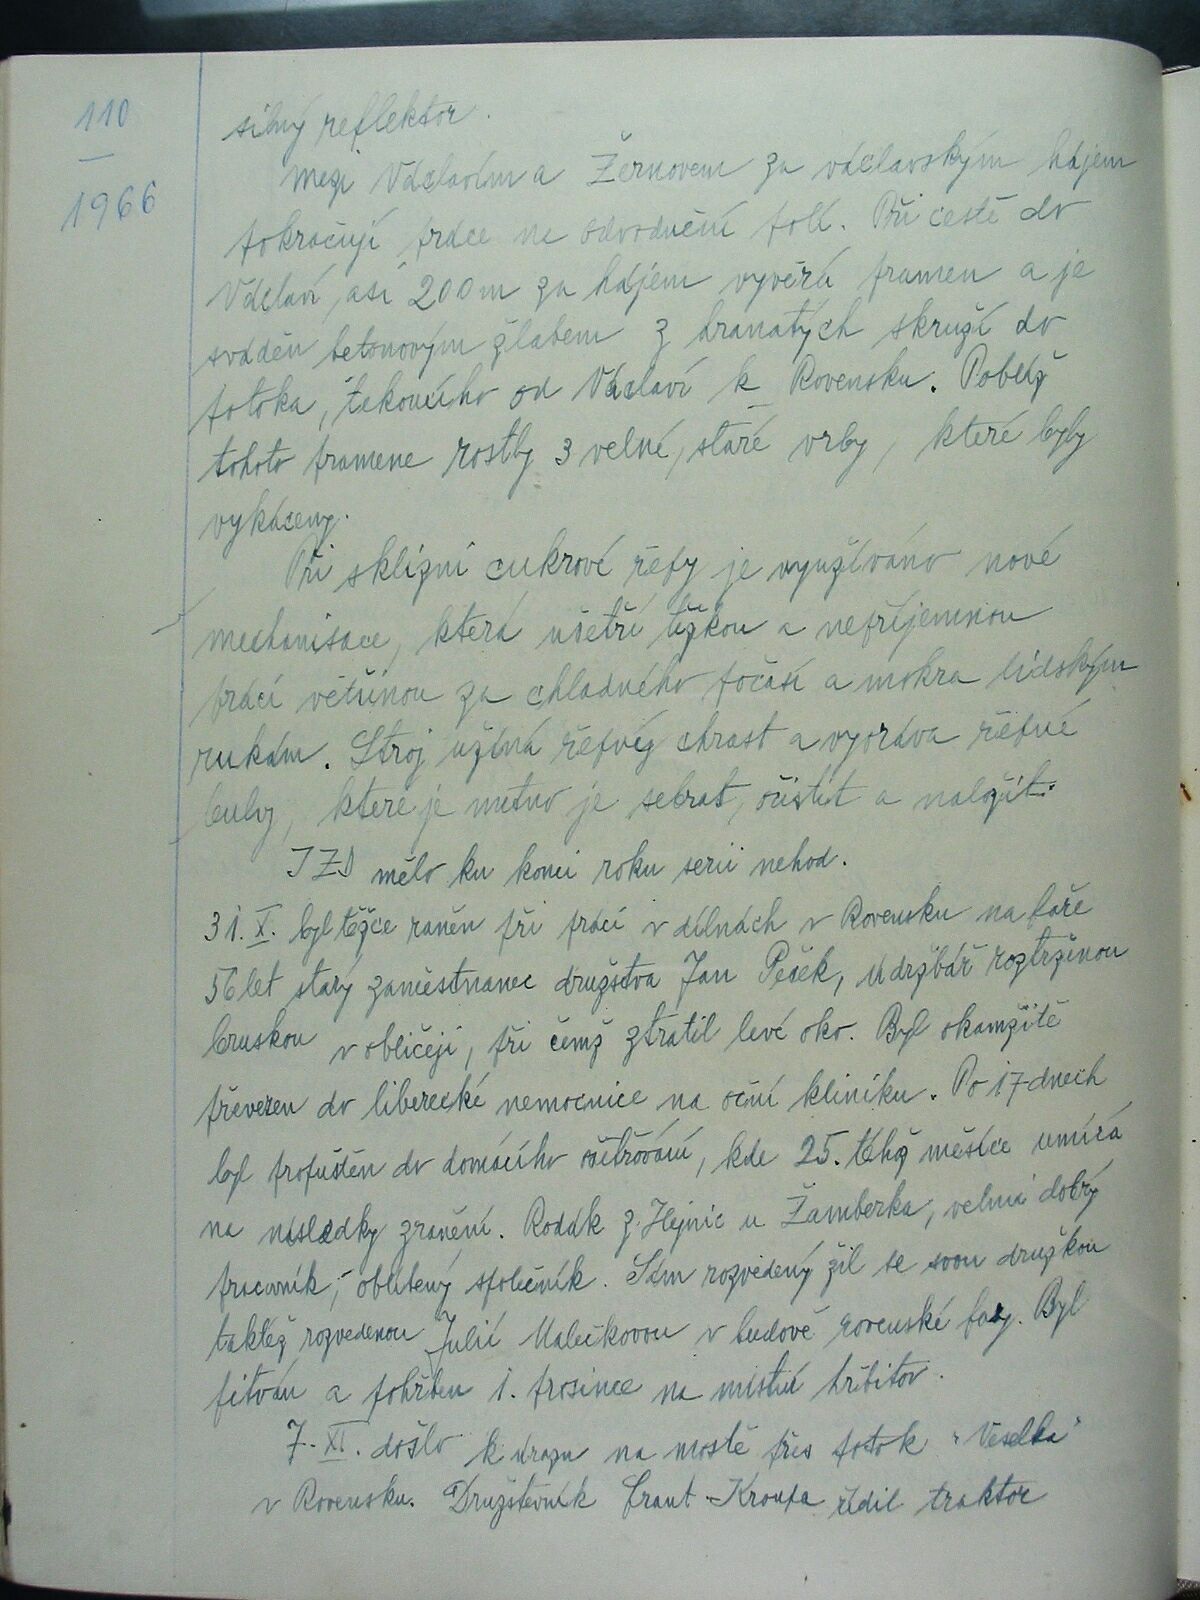 110
1966
silný reflektor.
Mezi Václavím a Žernovem za václavským hájem
pokračují práce na odvodnění polí. Při cestě do
Václaví, asi 200 m za hájem vyvěrá pramen a je
sváděn betonovým žlabem z hranatých skruží do
potoka, tekoucího od Václaví k Rovensku. Poblíž
tohoto pramene rostly 3 velné, staré vrby, které byly
vykáceny.
Při sklizni cukrové řepy je využíváno nové
mechanisace, která ušetří těžkou a nepříjemnou
práci většinou za chladného počasí a mokra lidským
rukám. Stroj užíná řepný chrast a vyorává řepné
bulvy, které je nutno je sebrat, očistit a naložit.
JZD mělo ku konci roku serii nehod.
31. X. byl těžce raněn při práci v dílnách v Rovensku na faře
56 let starý zaměstnanec družstva Jan Pešek, údržbář roztrženou
bruskou v obličeji, při čemž ztratil levé oko. Byl okamžitě
převezen do liberecké nemocnice na oční kliniku. Po 17 dnech
byl propuštěn do domácího ošetřování, kde 25. téhož měsíce umírá
na následky zranění. Rodák z Hejnic u Žamberka, velmi dobrý
pracovník, oblíbený společník. Sám rozvedený žil se svou družkou
taktéž rozvedenou Julií Malečkovou v budově rovenské fary. Byl
pitván a pohřben 1. prosince na místní hřbitov.
7. XI. došlo k úrazu na mostě přes potok "Veselka"
v Rovensku. Družstevník Frant. Kroupa řídil traktor